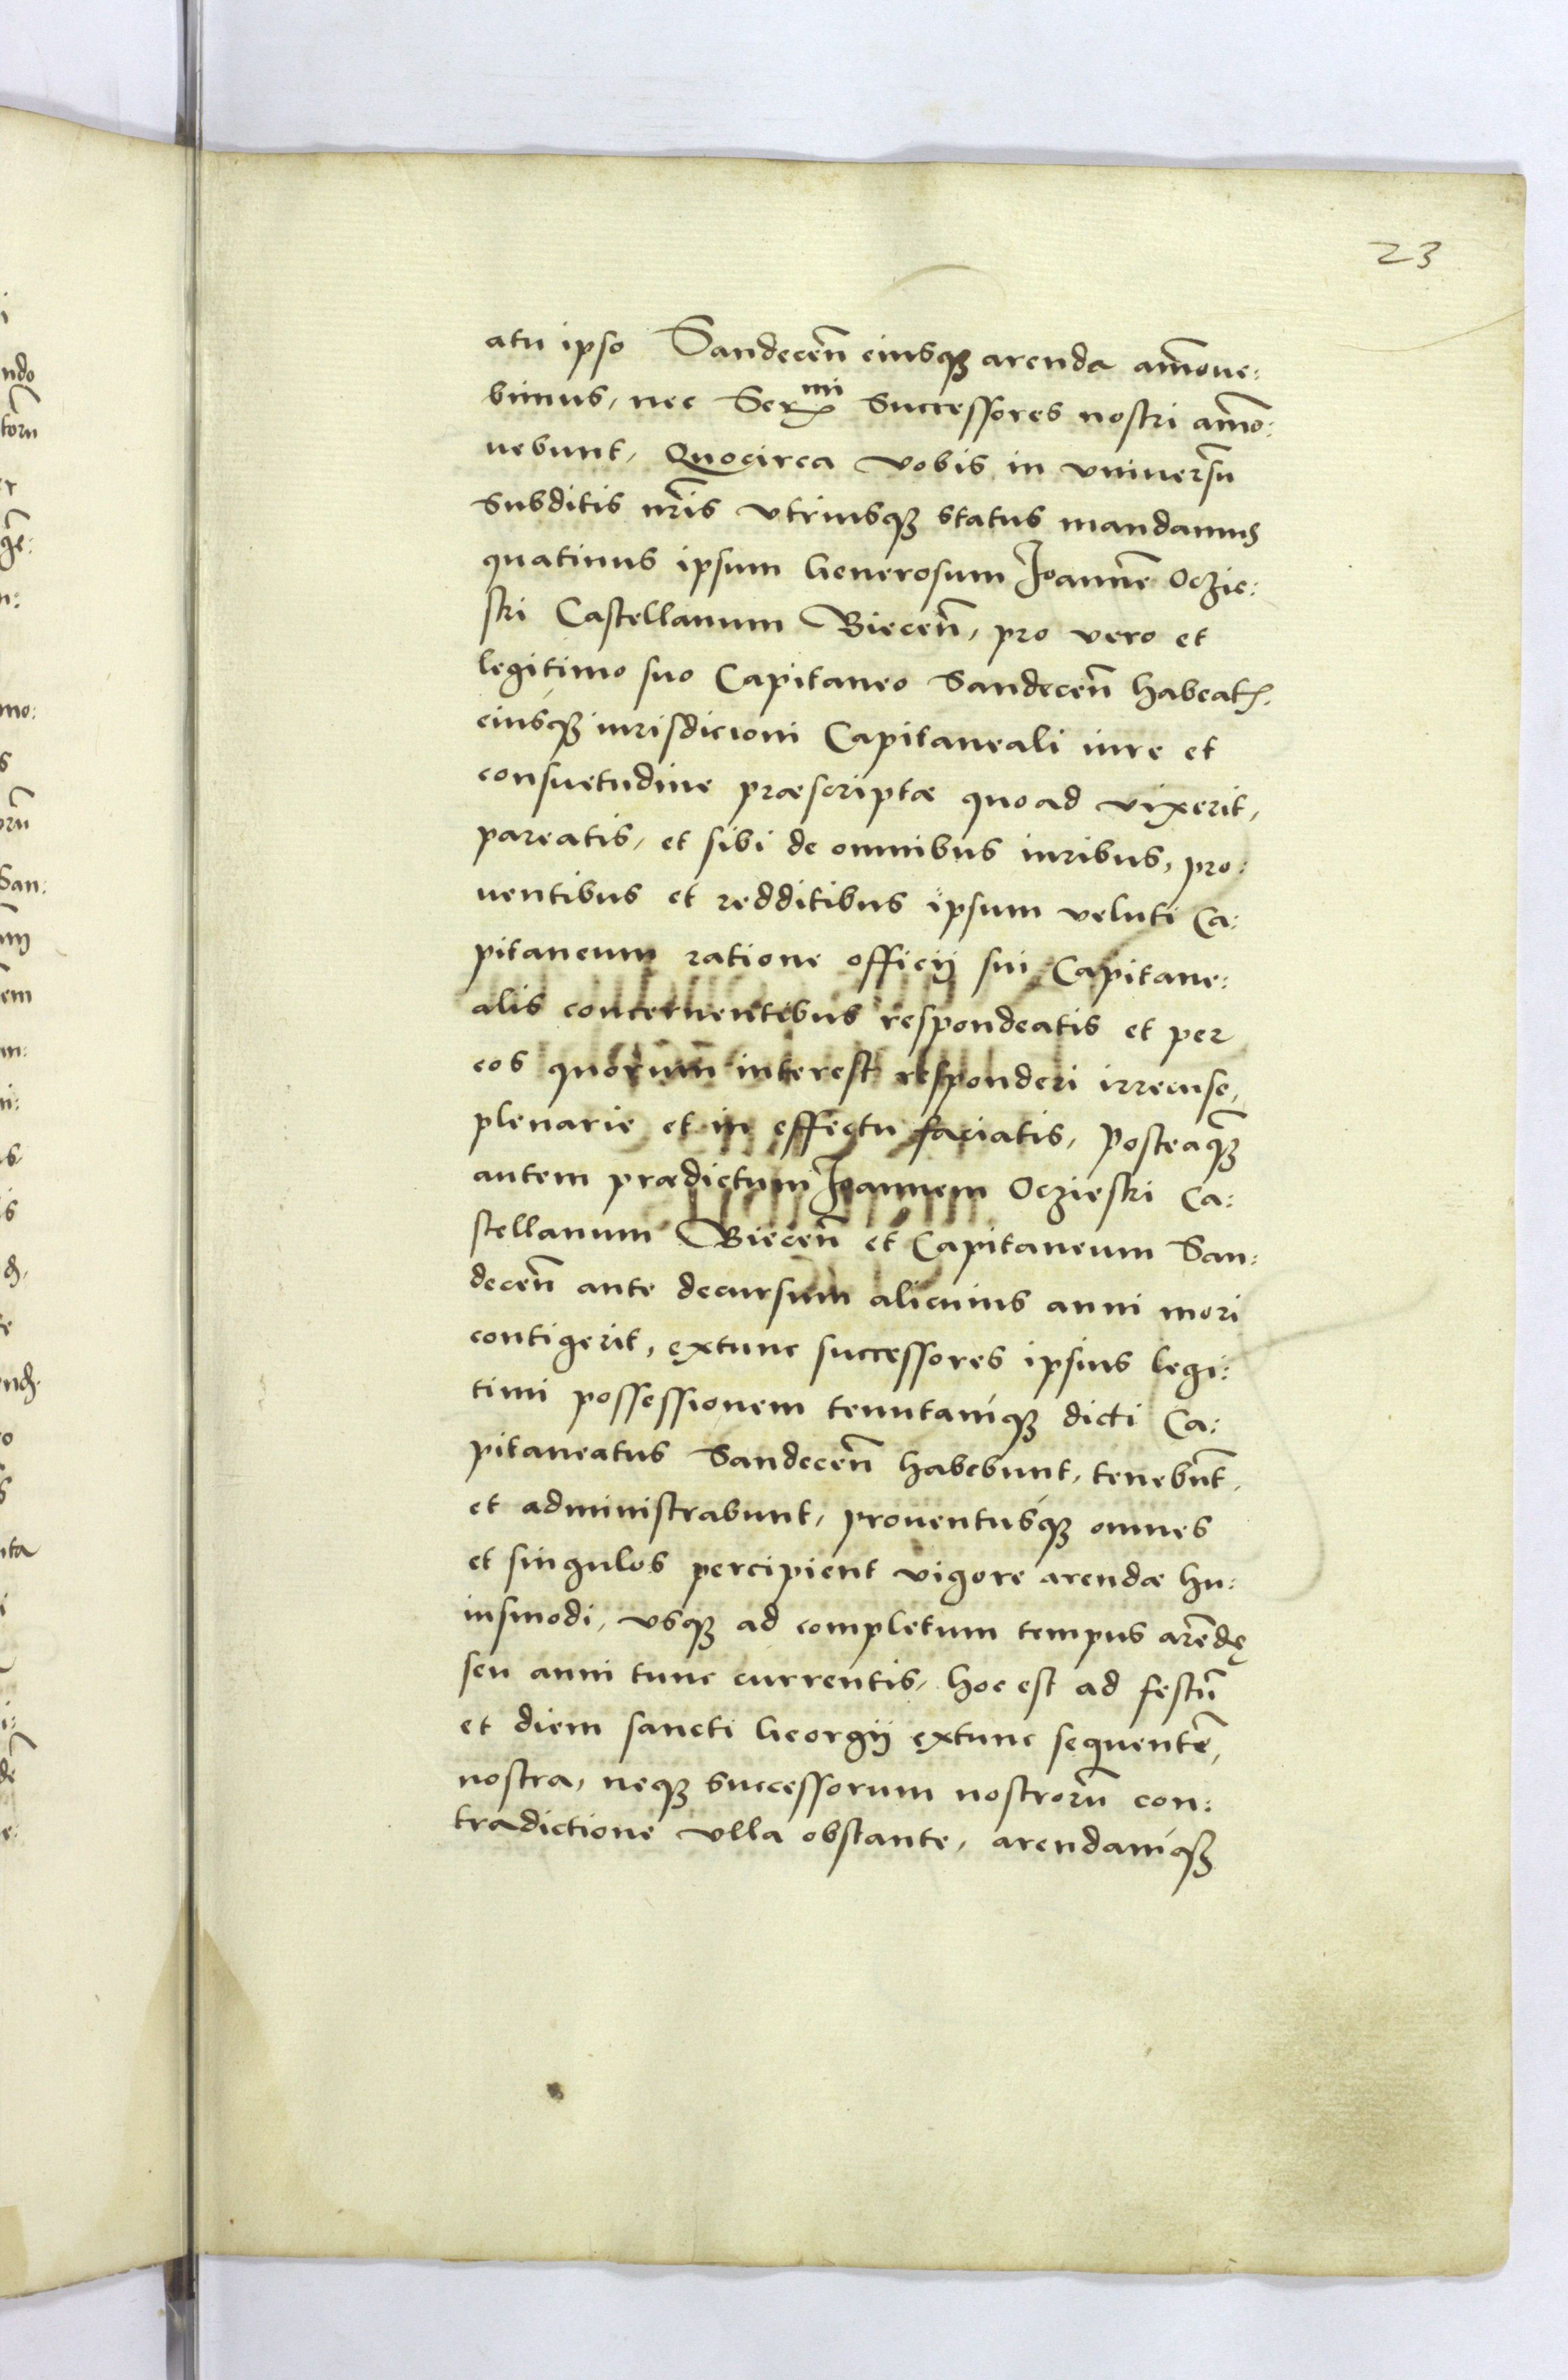 23
atu ipso Sandeceñ eiusqꝫ arenda am̃oue:
bimus, nec Serᵐⁱ Successores nostri am̃o:
uebunt, Quocirca vobis in vniuersũ
Subditis nr̃is vtriusqꝫ status mandamus
quatinus ipsum Generosum Joannẽ Oczie:
ski Castellanum Bieceñ, pro vero et
legitimo suo Capitaneo Sandeceñ habeatis.
eiúsqꝫ iurisdicioni Capitaneali iure et
consuetudine præscriptæ quoad vixerit,
pareatis, et sibi de omnibus iuribus, pro:
uentibus et redditibus ipsum veluti Ca:
pitaneum ratione officij sui Capitane:
alis concernentibus respondeatis et per
eos quorum interest responderi irrecuse,
plenarie et in effectu faciatis, Posteaqꝫ̃
autem prædictum Joannem Oczieski Ca:
stellanum Bieceñ et Capitaneum San:
deceñ ante decursum alicuius anni mori
contigerit, extunc successores ipsius legi:
timi possessionem tenutamqꝫ dicti Ca:
pitaneatus Sandeceñ habebunt, tenebũt,
et administrabunt, prouentúsqꝫ omnes
et singulos percipient vigore arendæ hu:
iusmodi, vsqꝫ ad completum tempus arẽdę
seu anni tunc currentis, hoc est ad festũ
et diem sancti Georgij extunc sequentẽ,
nostra, neqꝫ successorum nostrorũ con:
tradictione vlla obstante, arendamqꝫ